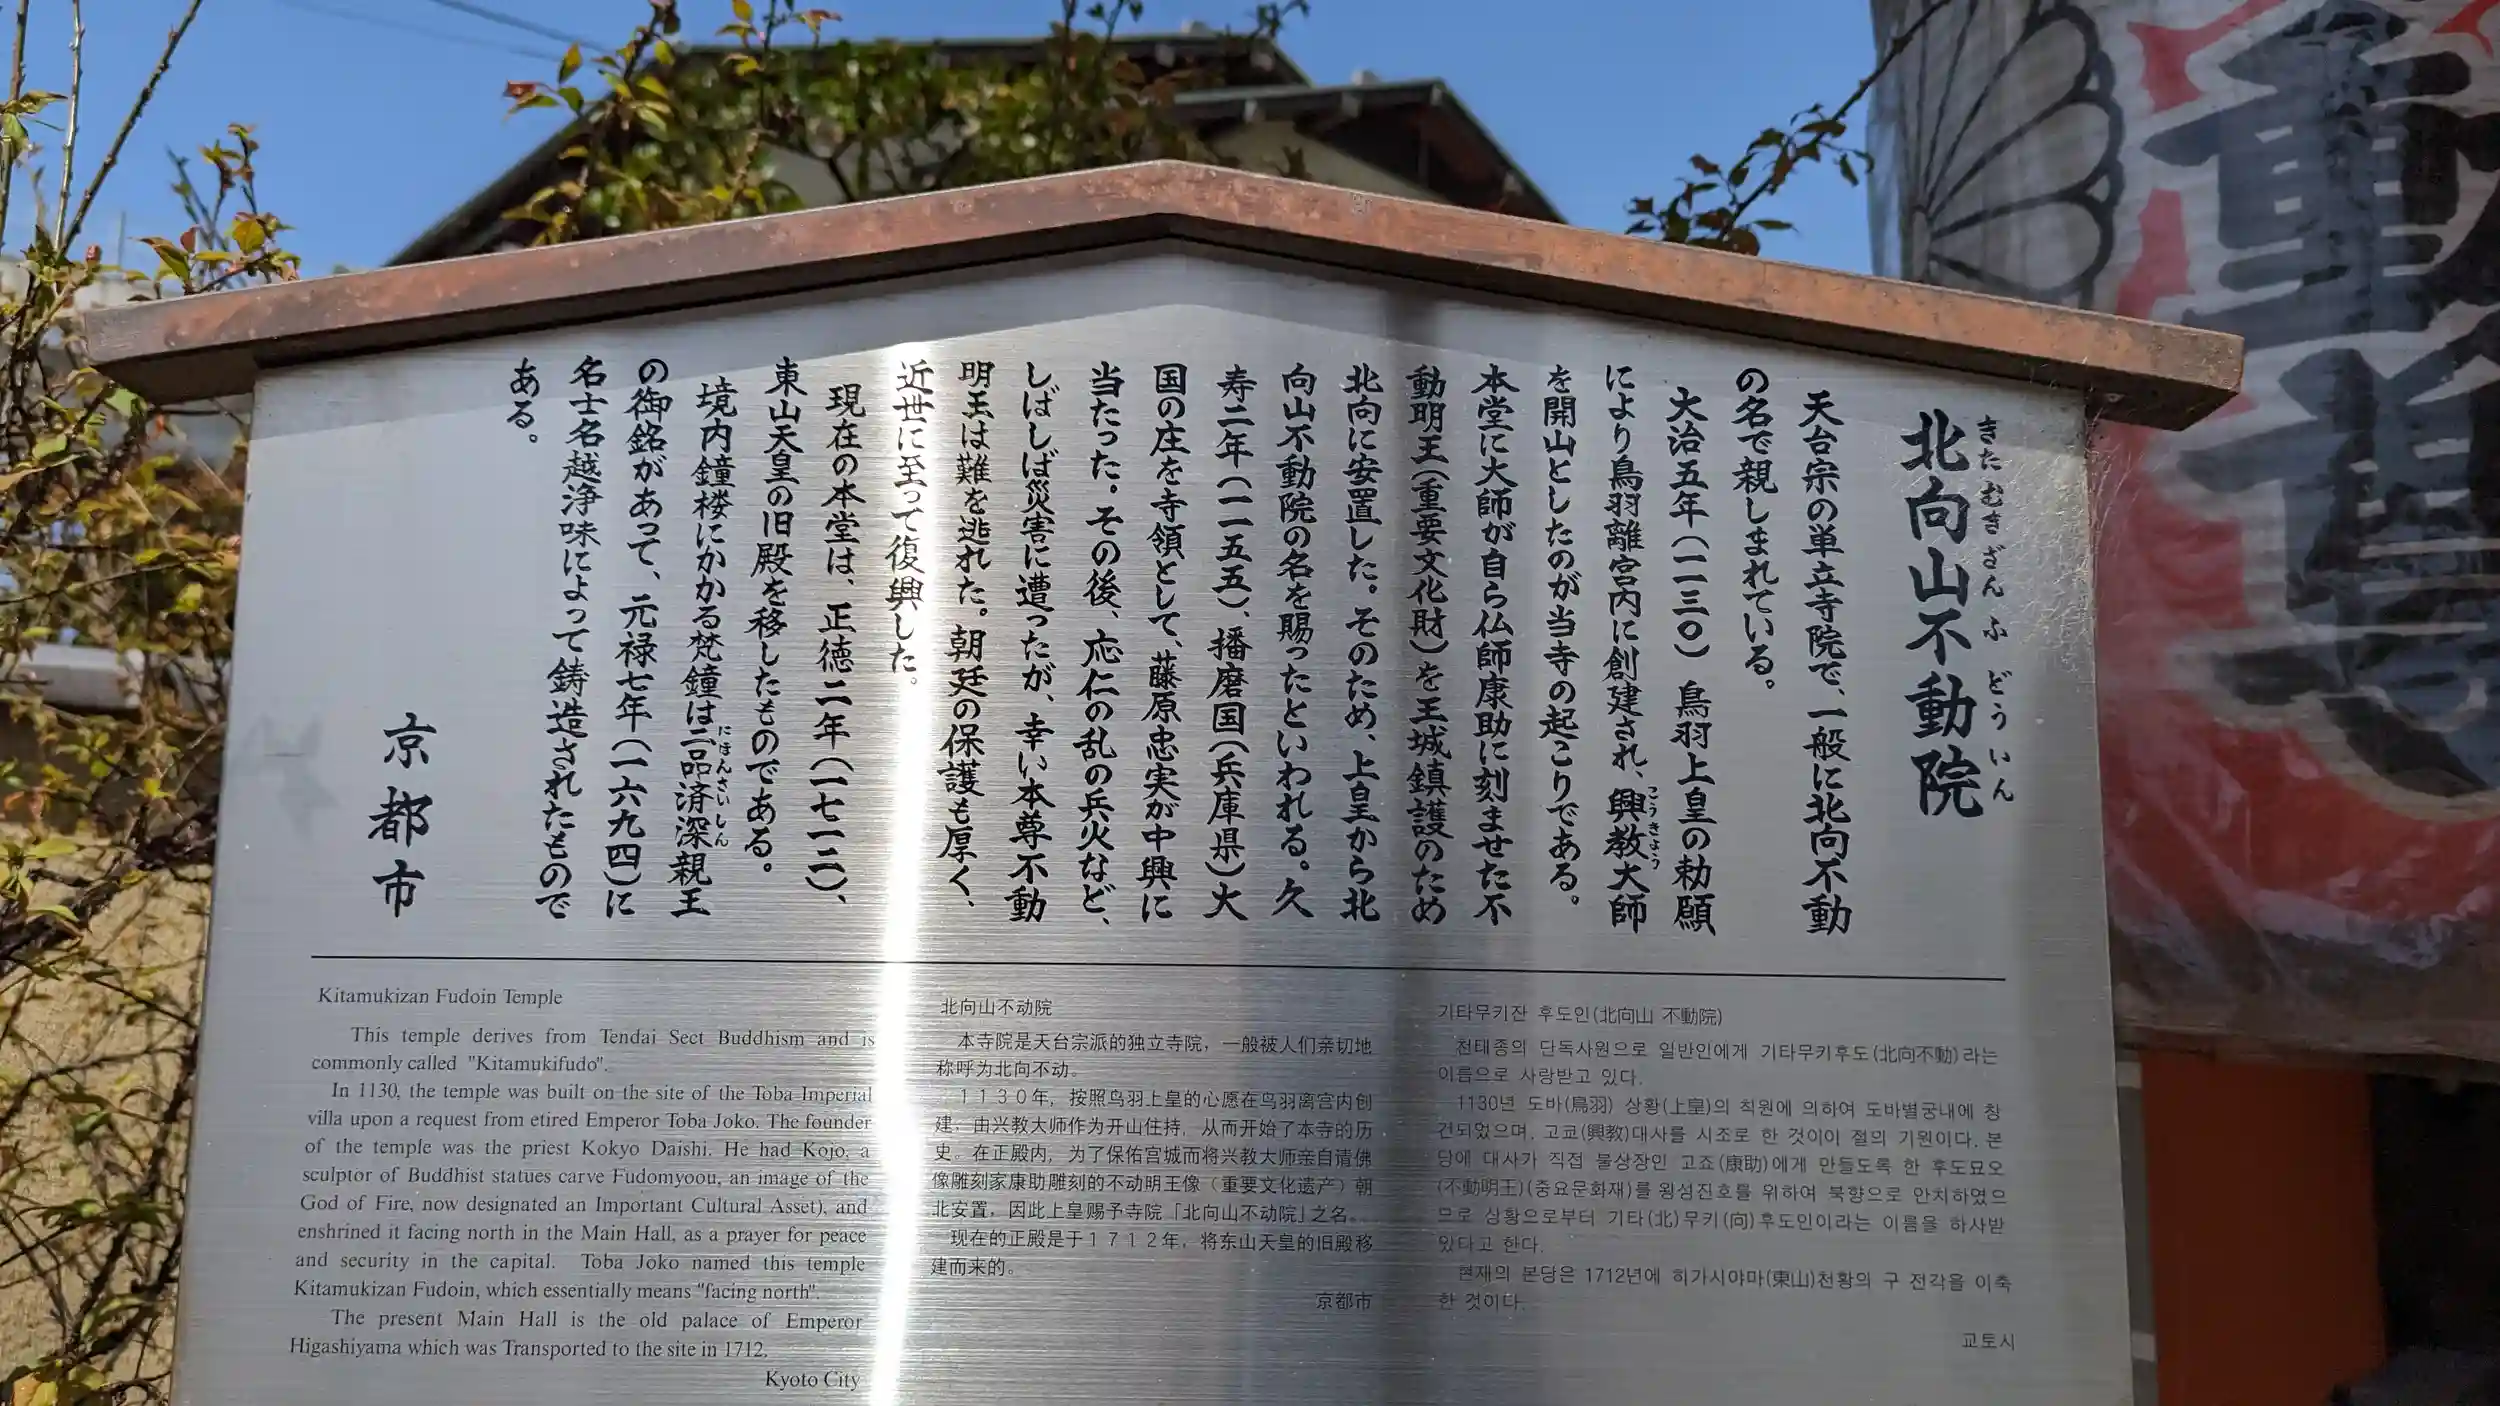 北向山不動院
きたむきざんふどういん
天台宗の単立寺院で、一般に北向不動
の名で親しまれている。
大治五年(一一三〇)鳥羽上皇の勅願
により鳥羽離宮内に創建され、興教大師
こうきょう
を開山としたのが当寺の起こりである。
本堂に大師が自ら仏師康助に刻ませた不
動明王(重要文化財)を王城鎮護のため
北向に安置した。そのため、上皇から北
向山不動院の名を賜ったといわれる。久
寿二年(一一五五)、播磨国(兵庫県)大
国の庄を寺領として、藤原忠実が中興に
当たった。その後、応仁の乱の兵火など、
しばしば災害に遭ったが、幸い本尊不動
明王は難を逃れた。朝廷の保護も厚く、
近世に至って復興した。
現在の本堂は、正徳二年(一七一二)、
東山天皇の旧殿を移したものである。
境内鐘楼にかかる梵鐘は二品済深親王
にほんさいしん
の御銘があって、元禄七年(一六九四)に
名士名越浄味によって鋳造されたもので
ある。
京都市
Kitamukizan Fudoin Temple
This temple derives from Tendai Sect Buddhism and is
commonly called "Kitamukifudo".
In 1130, the temple was built on the site of the Toba Imperial
villa upon a request from etired Emperor Toba Joko. The founder
of the temple was the priest Kokyo Daishi. He had Kojo, a
sculptor of Buddhist statues carve Fudomyoou, an image of the
God of Fire, now designated an Important Cultural Asset), and
enshrined it facing north in the Main Hall, as a prayer for peace
and security in the capital. Toba Joko named this temple
Kitamukizan Fudoin, which essentially means "facing north".
The present Main Hall is the old palace of Emperor
Higashiyama which was Transported to the site in 1712.
Kyoto City
北向山不动院
本寺院是天台宗派的独立寺院，一般被人们亲切地
称呼为北向不动。
１１３０年，按照鸟羽上皇的心愿在鸟羽离宫内创
建，由兴教大师作为开山住持，从而开始了本寺的历
史。在正殿内，为了保佑宫城而将兴教大师亲自请佛
像雕刻家康助雕刻的不动明王像（重要文化遗产）朝
北安置，因此上皇赐予寺院「北向山不动院」之名。
现在的正殿是于１７１２年，将东山天皇的旧殿移
建而来的。
京都市
기타무키잔 후도인(北向山 不動院)
천태종의 단독사원으로 일반인에게 기타무키후도(北向不動)라는
이름으로 사랑받고 있다.
1130년 도바(鳥羽) 상황(上皇)의 칙원에 의하여 도바별궁내에 창
건되었으며, 고쿄(興教)대사를 시조로 한 것이이 절의 기원이다. 본
당에 대사가 직접 불상장인 고죠(康助)에게 만들도록 한 후도묘오
(不動明王)(중요문화재)를 왕성진호를 위하여 북향으로 안치하였으
므로 상황으로부터 기타(北)무키(向)후도인이라는 이름을 하사받
았다고 한다.
현재의 본당은 1712년에 히가시야마(東山)천황의 구 전각을 이축
한 것이다.
교토시